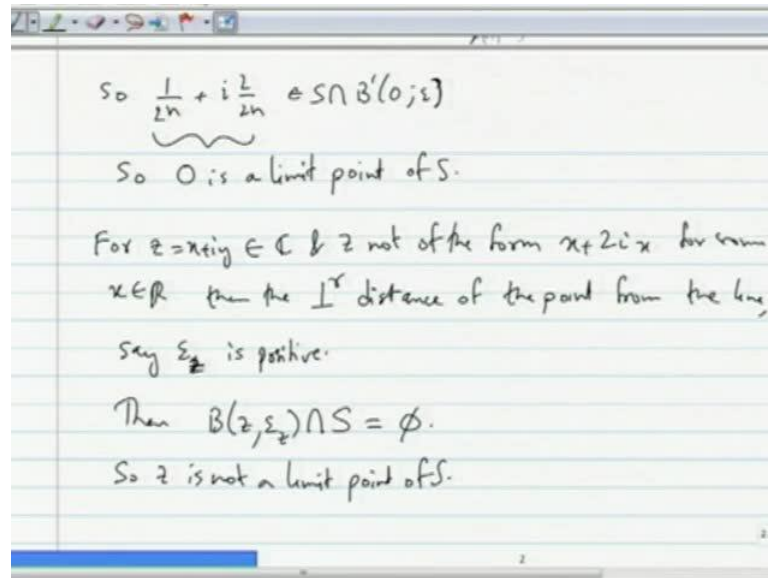 So 1/2n + i 2/2n ∈ S∩B'(0;ε)
So 0 is a limit point of S.
For z=x+iy ∈ ℂ & z not of the form x+2ix for some
x∈ℝ then the ⊥r distance of the point from the line,
say ε_z is positive.
Then B(z,ε_z)∩S = ∅.
So z is not a limit point of S.
2
2